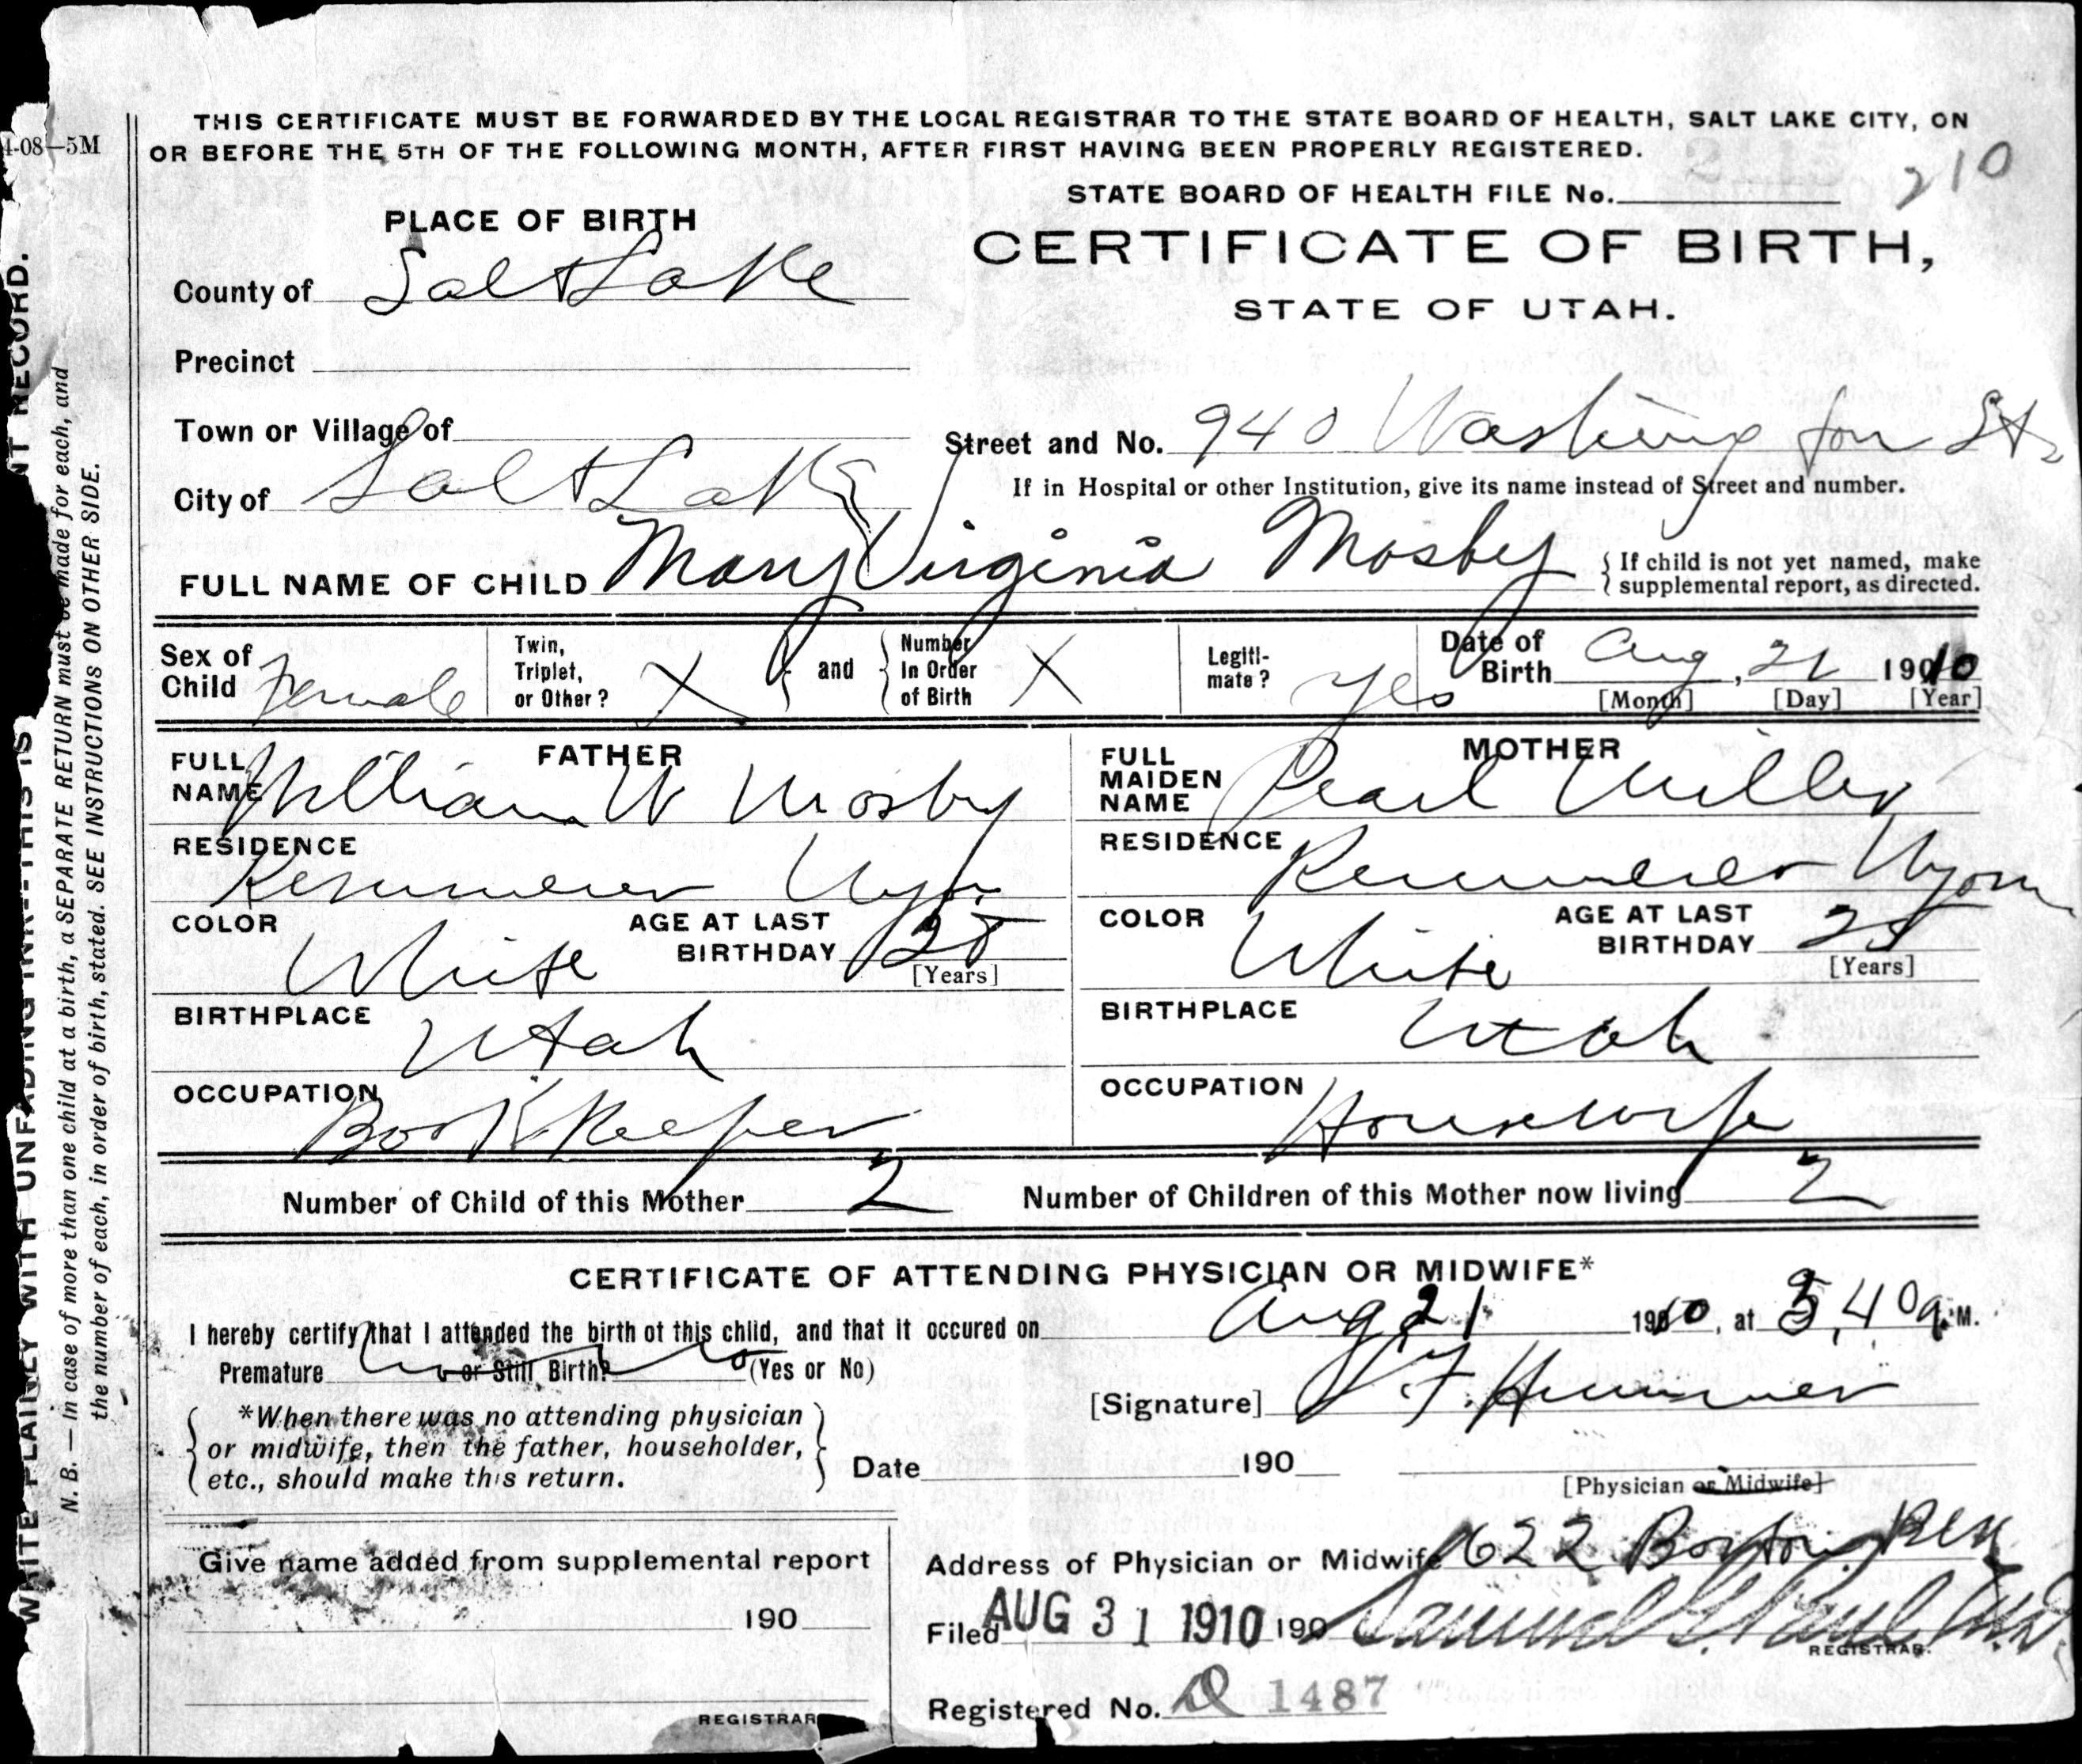 THIS CERTIFICATE MUST BE FORWARDED BY THE LOCAL REGISTRAR TO THE STATE BOARD OF HEALTH, SALT LAKE CITY, ON
OR BEFORE THE 5TH OF THE FOLLOWING MONTH, AFTER FIRST HAVING BEEN PROPERLY REGISTERED.
4-08-5M
STATE BOARD OF HEALTH FILE No. 210
PLACE OF BIRTH
CERTIFICATE OF BIRTH,
STATE OF UTAH.
County of Salt Lake
Precinct
Town or Village of
Street and No. 940 Washington St
City of Salt Lake
If in Hospital or other Institution, give its name instead of Street and number.
FULL NAME OF CHILD Mary Virginia Mosby
{ If child is not yet named, make
supplemental report, as directed.
Sex of Child Female
Twin, Triplet, or Other? X } and { Number In Order of Birth X
Legiti-mate? Yes
Date of Birth Aug, 21 1910
[Month] [Day] [Year]
FATHER
FULL NAME William W Mosby
RESIDENCE
Kemmerer Wyo
COLOR White
AGE AT LAST BIRTHDAY 28
[Years]
BIRTHPLACE Utah
OCCUPATION Book Keeper
MOTHER
FULL MAIDEN NAME Pearl Miller
RESIDENCE Kemmerer Wyom
COLOR White
AGE AT LAST BIRTHDAY 25
[Years]
BIRTHPLACE Utah
OCCUPATION Housewife
Number of Child of this Mother 2
Number of Children of this Mother now living 2
CERTIFICATE OF ATTENDING PHYSICIAN OR MIDWIFE*
I hereby certify that I attended the birth of this child, and that it occured on Aug 21 1910, at 40 a. M.
Premature no or Still Birth? no (Yes or No)
[Signature] Hummer
*When there was no attending physician
or midwife, then the father, householder,
etc., should make this return.
Date 190
[Physician or Midwife]
Give name added from supplemental report
190
REGISTRAR
Address of Physician or Midwife 622 Boston
Filed AUG 31 1910 190 Samuel G. Paul M.D.
REGISTRAR.
Registered No. 1487
WRITE PLAINLY WITH UNFADING INK—THIS IS NT RECORD.
N. B. — In case of more than one child at a birth, a SEPARATE RETURN must be made for each, and
the number of each, in order of birth, stated. SEE INSTRUCTIONS ON OTHER SIDE.